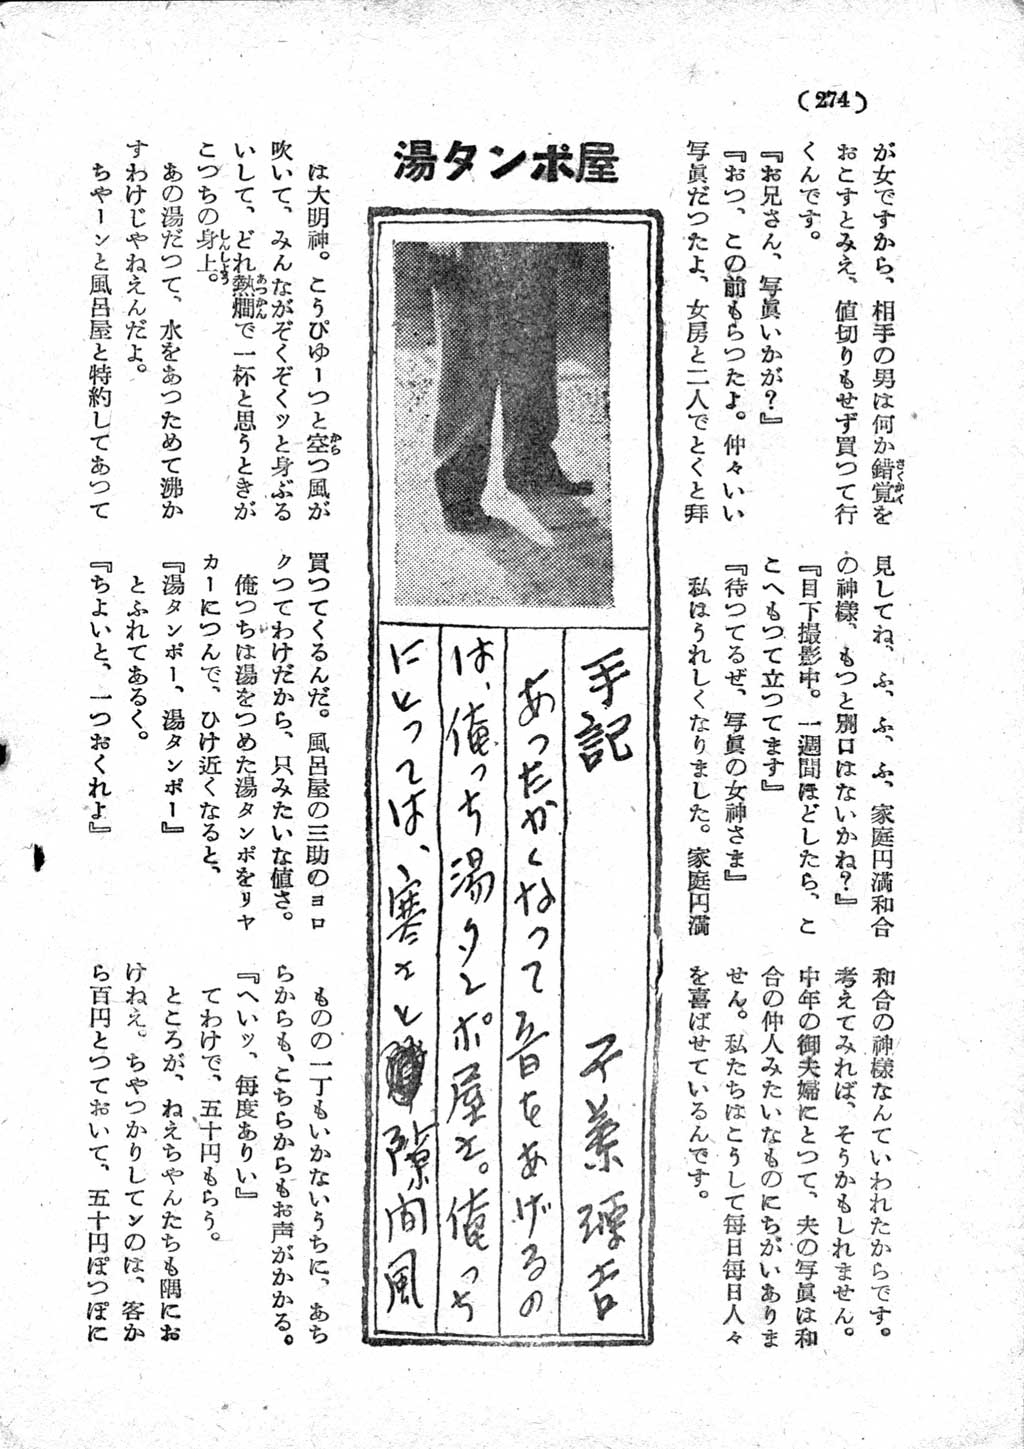 (274)
が女ですから、相手の男は何か錯覚を
おこすとみえ、値切りもせず買つて行
くんです。
『お兄さん、写眞いかが？』
『おつ、この前もらつたよ。仲々いい
写眞だつたよ、女房と二人でとくと拜
見してね、ふ、ふ、ふ、家庭円満和合
の神様、もつと別口はないかね？』
『目下撮影中。一週間ほどしたら、こ
こへもつて立つてます』
『待つてるぜ、写眞の女神さま』
私はうれしくなりました。家庭円満
和合の神様なんていわれたからです。
考えてみれば、そうかもしれません。
中年の御夫婦にとつて、夫の写眞は和
合の仲人みたいなものにちがいありま
せん。私たちはこうして毎日毎日人々
を喜ばせているんです。
湯タンポ屋
手記
あったかくなって音をあげるの
は、俺っち湯タンポ屋さ。俺っち
にとっては、寒さと隙間風
は大明神。こうぴゆーつと空つ風が
吹いて、みんながぞくぞくッと身ぶる
いして、どれ熱燗で一杯と思うときが
こつちの身上。
あの湯だつて、水をあつためて沸か
すわけじやねえんだよ。
ちやーンと風呂屋と特約してあつて
買つてくるんだ。風呂屋の三助のヨロ
クつてわけだから、只みたいな値さ。
俺つちは湯をつめた湯タンポをリヤ
カーにつんで、ひけ近くなると、
『湯タンポー、湯タンポー』
とふれてあるく。
『ちよいと、一つおくれよ』
ものの一丁もいかないうちに、あち
らからも、こちらからもお声がかかる。
『へいッ、毎度ありい』
てわけで、五十円もらう。
ところが、ねえちやんたちも隅にお
けねえ。ちやつかりしてンのは、客か
ら百円とつておいて、五十円ぽつぽに